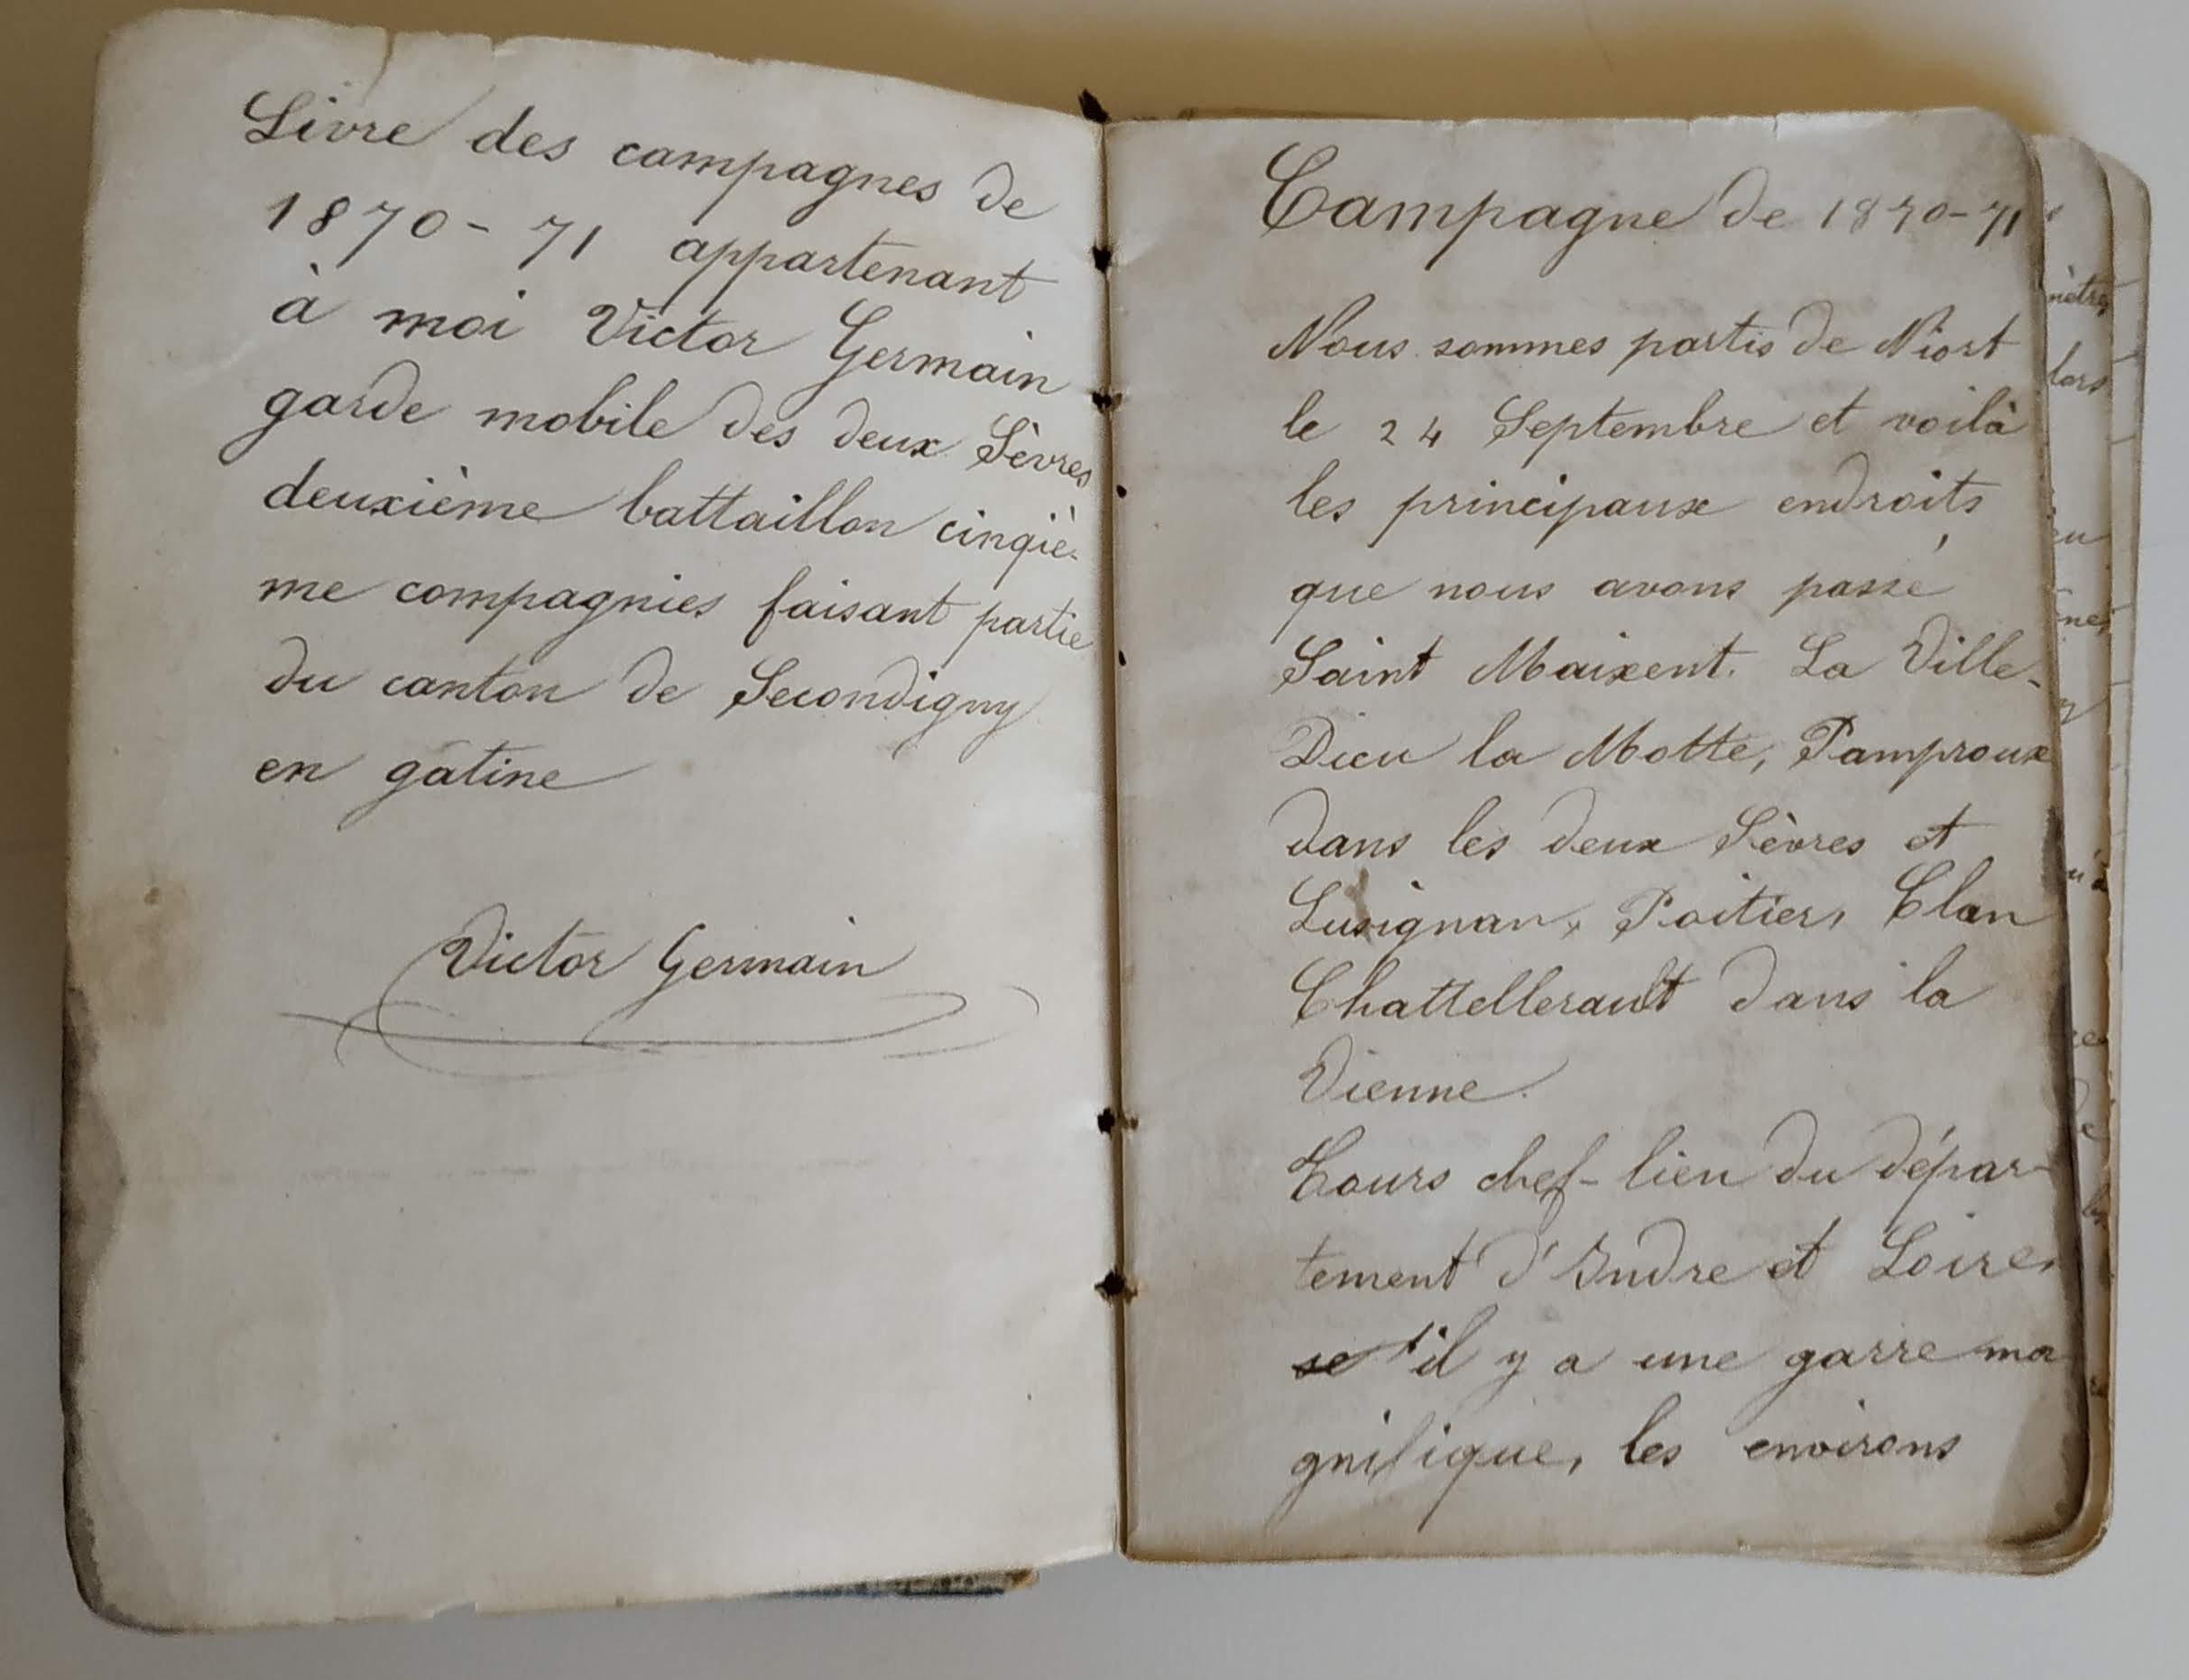 Livre des campagnes de
1870-71 appartenant
à moi Victor Germain
garde mobile des deux Sèvres
deuxième battaillon cinqiè-
me compagnies faisant partie
du canton de Secondigny
en gatine
Victor Germain
Campagne de 1870-71
Nous sommes partis de Niort
le 24 Septembre et voilà
les principaux endroits
que nous avons passé
Saint Maixent. La Ville-
Dieu la Motte, Pamproux
dans les deux Sèvres et
Lusignan, Poitiers, Clan
Chattellerault dans la
Vienne.
Tours chef-lieu du dépar-
tement d'Indre et Loire,
il y a une garre ma
gnifique, les environs